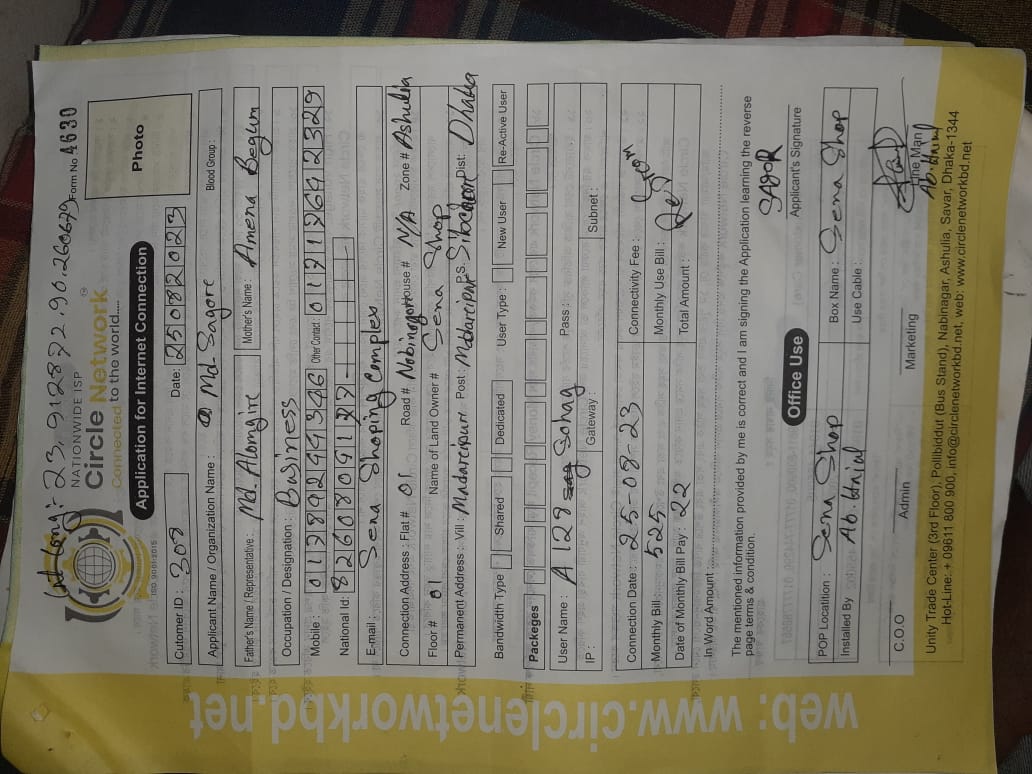 Lat Long:- 23.912872.90.260679
NATIONWIDE ISP
Form No 4630
Circle Network
Connected to the world....
ISO 9001:2015
Application for Internet Connection
Photo
Cutomer ID : 308
Date: 25082023
Applicant Name / Organization Name : Md. Sagore
Blood Group :
Father's Name / Representative : Md. Alomgire
Mother's Name : Amena Begum
Occupation / Designation : Business
Mobile : 01789244346
Other Contact : 017119642329
National Id:
E-mail : Sena Shoping Complex
Connection Address : Flat # 01 Road # Nobinogor House # N/A Zone # Ashulia
Floor # 01 Name of Land Owner # Sena Shop
Permanent Address : Vill : Madaripur Post: Madaripur P.S: Dist: Dhaka
Bandwidth Type Shared Dedicated User Type : New User Re-Active User
Packeges
User Name : A 129 Sohag Pass :
IP : Gateway : Subnet :
Connection Date : 25-08-23 Connectivity Fee :
Monthly Bill : 525 Monthly Use Bill :
Date of Monthly Bill Pay : 22 Total Amount :
In Word Amount :
The mentioned information provided by me is correct and I am signing the Application learning the reverse
page terms & condition.
SAGOR
Applicant's Signature
Office Use
POP Locatition : Sena Shop Box Name : Sena Shop
Installed By Use Cable :
C.O.O Admin Marketing Line Man
Unity Trade Center (3rd Floor), Pollibiddut (Bus Stand), Nabinagar, Ashulia, Savar, Dhaka-1344
Hot-Line: + 09611 800 900, info@circlenetworkbd.net, web: www.circlenetworkbd.net
web: www.circlenetworkbd.net